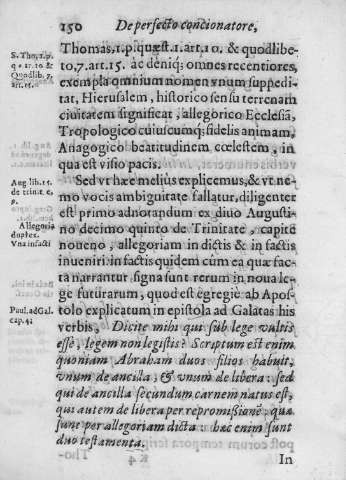 150 De perfecto concionatore,
S. Tho. 1. p.
q. 1. ar. 10. &
Quodlib. 7.
art. 15.
Thomas, 1. p. quæst. 1. art. 10. & quodlibe-
to, 7. art. 15. ac deniq; omnes recentiores,
exempla omnium nomen vnum suppedi-
tat, Hierusalem, historico sensu terrenam
ciuitatem significat, allegorico Ecclesiã,
Tropologico cuiuscumq; fidelis animam,
Anagogico beatitudinem cœlestem, in
qua est visio pacis.
Aug. lib. 15.
de trinit. c.
9.
Allegoria
duplex.
Vna in facti
Sed vt hæc melius explicemus, & vt ne-
mo vocis ambiguitate fallatur, diligenter
est primo adnotandum ex diuo Augusti-
no decimo quinto de Trinitate, capite
noueno, allegoriam in dictis & in factis
inueniri: in factis quidem cum ea quæ fac-
ta narrantur signa sunt rerum in noua le-
ge futurarum, quod est egregiè ab Apos-
tolo explicatum in epistola ad Galatas his
Paul. ad Gal.
cap. 4.
verbis, Dicite mihi qui sub lege vultis
esse, legem non legistis? Scriptum est enim
quoniam Abraham duos filios habuit,
vnum de ancilla, & vnum de libera: sed
qui de ancilla secundum carnem natus est,
qui autem de libera per repromissionẽ: quæ
sunt per allegoriam dicta: hæc enim sunt
duo testamenta.
In